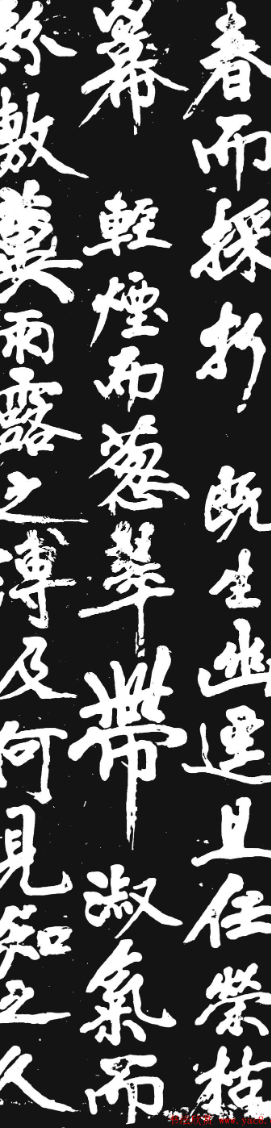 春而採折既生幽遐且任榮枯
冪輕煙而葱翠帶淑氣而
紛敷冀雨露之溥及何見知之久